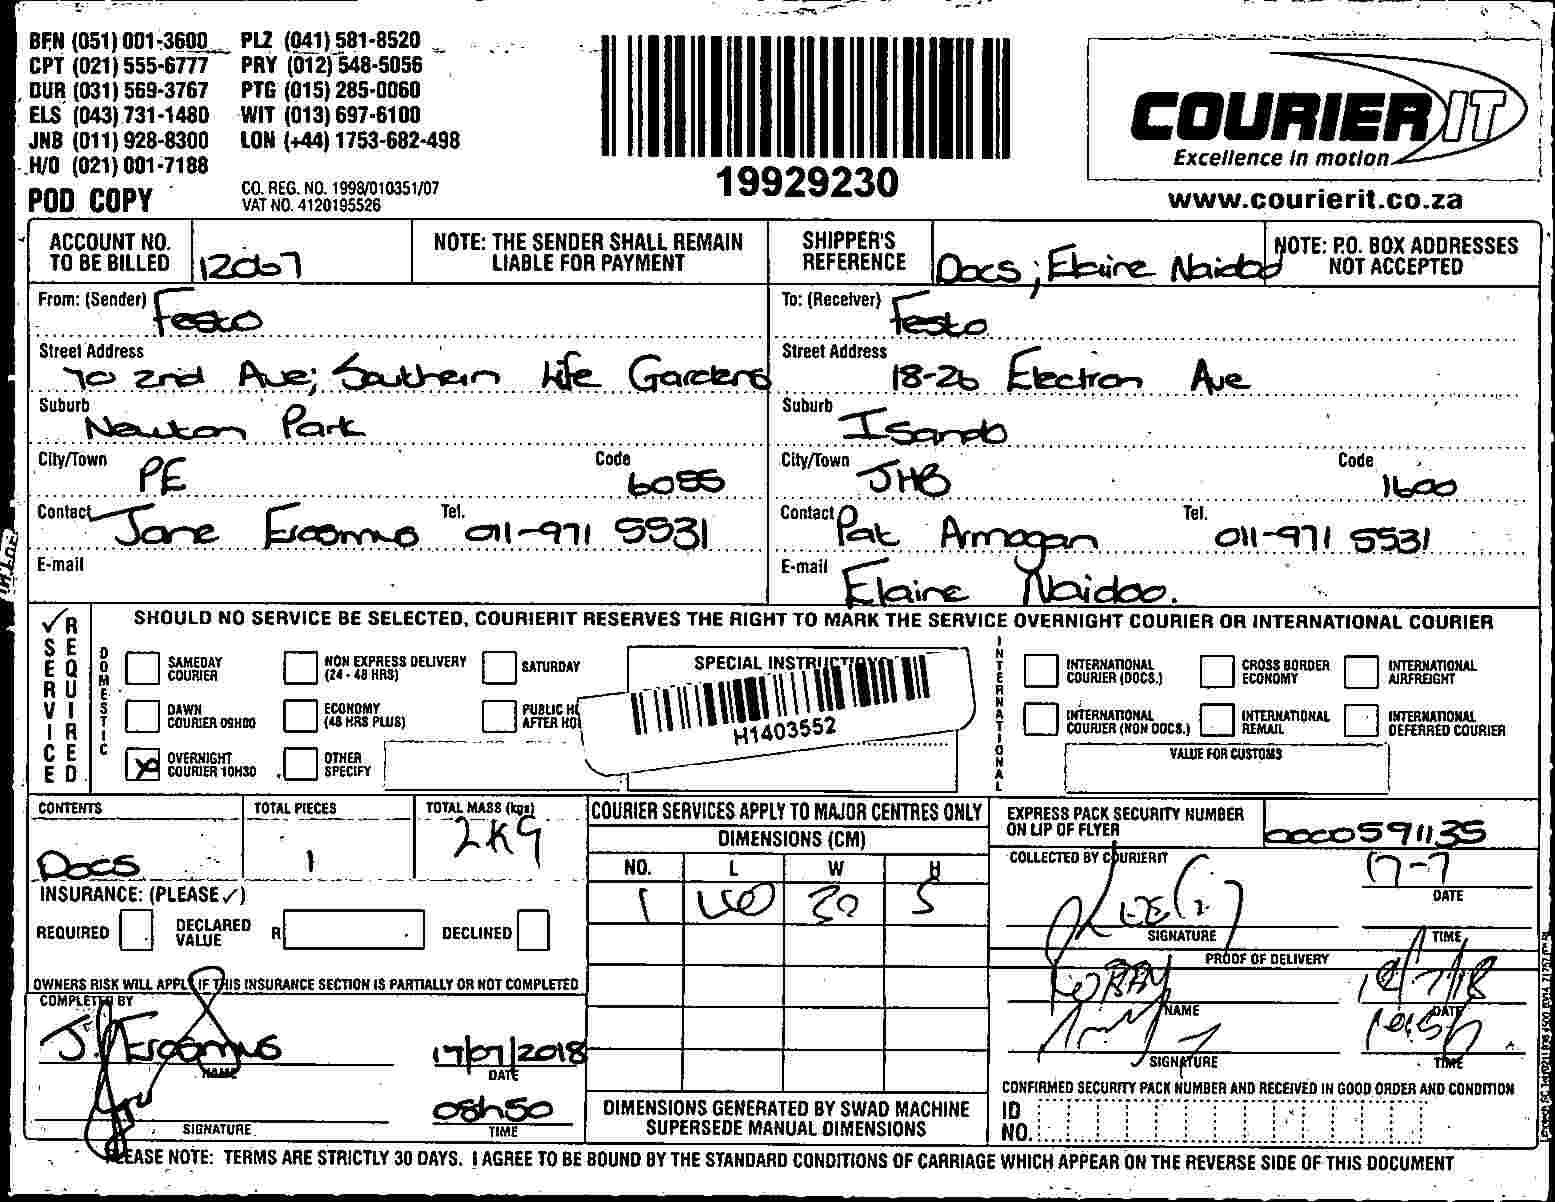 BFN (051) 001-3600 PLZ (041) 581-8520
CPT (021) 555-6777 PRY (012) 548-5056
DUR (031) 569-3767 PTG (015) 285-0060
ELS (043) 731-1480 WIT (013) 697-6100
JNB (011) 928-8300 LON (+44) 1753-682-498
H/O (021) 001-7188
POD COPY
CO. REG. NO. 1998/010351/07
VAT NO. 4120195526
19929230
COURIER IT
Excellence in motion
www.courierit.co.za
ACCOUNT NO. TO BE BILLED 12067
NOTE: THE SENDER SHALL REMAIN LIABLE FOR PAYMENT
SHIPPER'S REFERENCE Docs; Elaine Naidoo
NOTE: P.O. BOX ADDRESSES NOT ACCEPTED
From: (Sender) Festo
Street Address 70 2nd Ave; Southern Life Gardens
Suburb Newton Park
City/Town PE Code 6055
Contact Jane Erasmus Tel. 011-971 5531
E-mail
To: (Receiver) Festo
Street Address 18-26 Electron Ave
Suburb Isando
City/Town JHB Code 1600
Contact Pat Armogan Tel. 011-971 5531
E-mail Elaine Naidoo.
✓ SERVICE REQUIRED
SHOULD NO SERVICE BE SELECTED, COURIERIT RESERVES THE RIGHT TO MARK THE SERVICE OVERNIGHT COURIER OR INTERNATIONAL COURIER
DOMESTIC
SAMEDAY COURIER
NON EXPRESS DELIVERY (24 - 48 HRS)
SATURDAY
DAWN COURIER 09H00
ECONOMY (48 HRS PLUS)
PUBLIC H
AFTER HO
OVERNIGHT COURIER 10H30
OTHER SPECIFY
SPECIAL INSTRUCTIONS
H1403552
INTERNATIONAL
INTERNATIONAL COURIER (DOCS.)
CROSS BORDER ECONOMY
INTERNATIONAL AIRFREIGHT
INTERNATIONAL COURIER (NON DOCS.)
INTERNATIONAL REMAIL
INTERNATIONAL DEFERRED COURIER
VALUE FOR CUSTOMS
CONTENTS Docs
TOTAL PIECES 1
TOTAL MASS (kgs) 2KG
INSURANCE: (PLEASE ✓)
REQUIRED
DECLARED VALUE R
DECLINED
OWNERS RISK WILL APPLY IF THIS INSURANCE SECTION IS PARTIALLY OR NOT COMPLETED
COMPLETED BY
J. Erasmus
NAME
17/07/2018
DATE
08h50
TIME
SIGNATURE
COURIER SERVICES APPLY TO MAJOR CENTRES ONLY
DIMENSIONS (CM)
NO. L W H
1 40 30 5
DIMENSIONS GENERATED BY SWAD MACHINE SUPERSEDE MANUAL DIMENSIONS
EXPRESS PACK SECURITY NUMBER ON LIP OF FLYER 0000591135
COLLECTED BY COURIERIT
17-7
DATE
SIGNATURE
TIME
PROOF OF DELIVERY
18/7/18
NAME
DATE
SIGNATURE
TIME
CONFIRMED SECURITY PACK NUMBER AND RECEIVED IN GOOD ORDER AND CONDITION
ID NO.
PLEASE NOTE: TERMS ARE STRICTLY 30 DAYS. I AGREE TO BE BOUND BY THE STANDARD CONDITIONS OF CARRIAGE WHICH APPEAR ON THE REVERSE SIDE OF THIS DOCUMENT